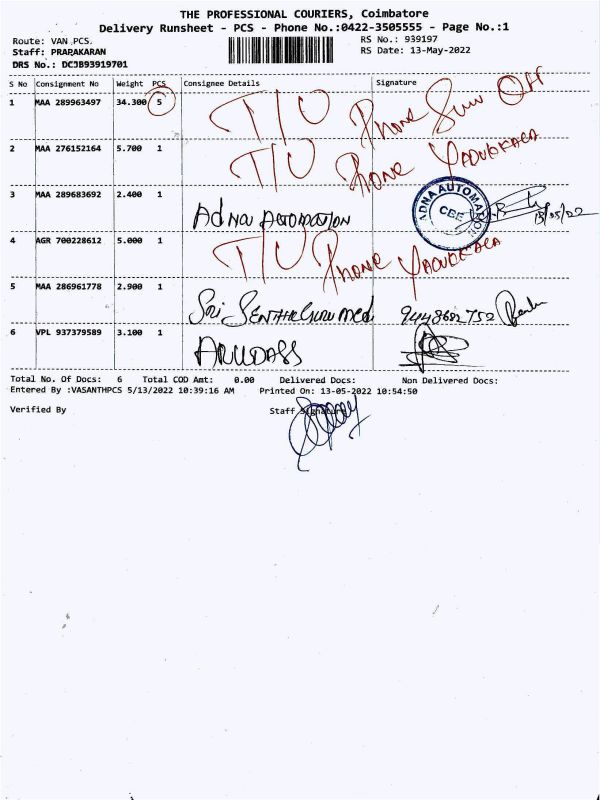 THE PROFESSIONAL COURIERS, Coimbatore
Delivery Runsheet - PCS - Phone No.:0422-3505555 - Page No.:1
Route: VAN PCS.
RS No.: 939197
Staff: PRARAKARAN
RS Date: 13-May-2022
DRS No.: DC3B93919701
S No Consignment No Weight PCS Consignee Details Signature
1 MAA 289963497 34.300 5 T/U Phone
2 MAA 276152164 5.700 1 T/U Phone
3 MAA 289683692 2.400 1 Adna Automation 13/05/22
ADNA AUTOMATION
CBE
4 AGR 700228612 5.000 1 T/U Phone
5 MAA 286961778 2.900 1 Sri 9448682752
6 VPL 937379589 3.100 1
Total No. Of Docs: 6 Total COD Amt: 0.00 Delivered Docs: Non Delivered Docs:
Entered By :VASANTHPCS 5/13/2022 10:39:16 AM Printed On: 13-05-2022 10:54:50
Verified By Staff Signature